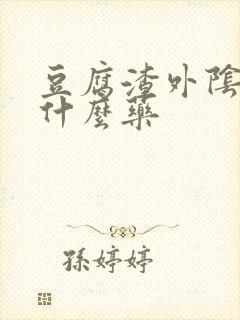 豆腐渣外陰
什麼藥
孫婷婷